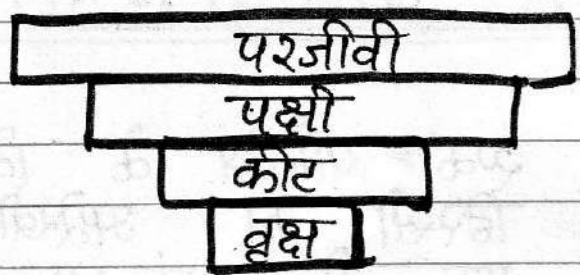 परजीवी
पक्षी
कीट
वृक्ष